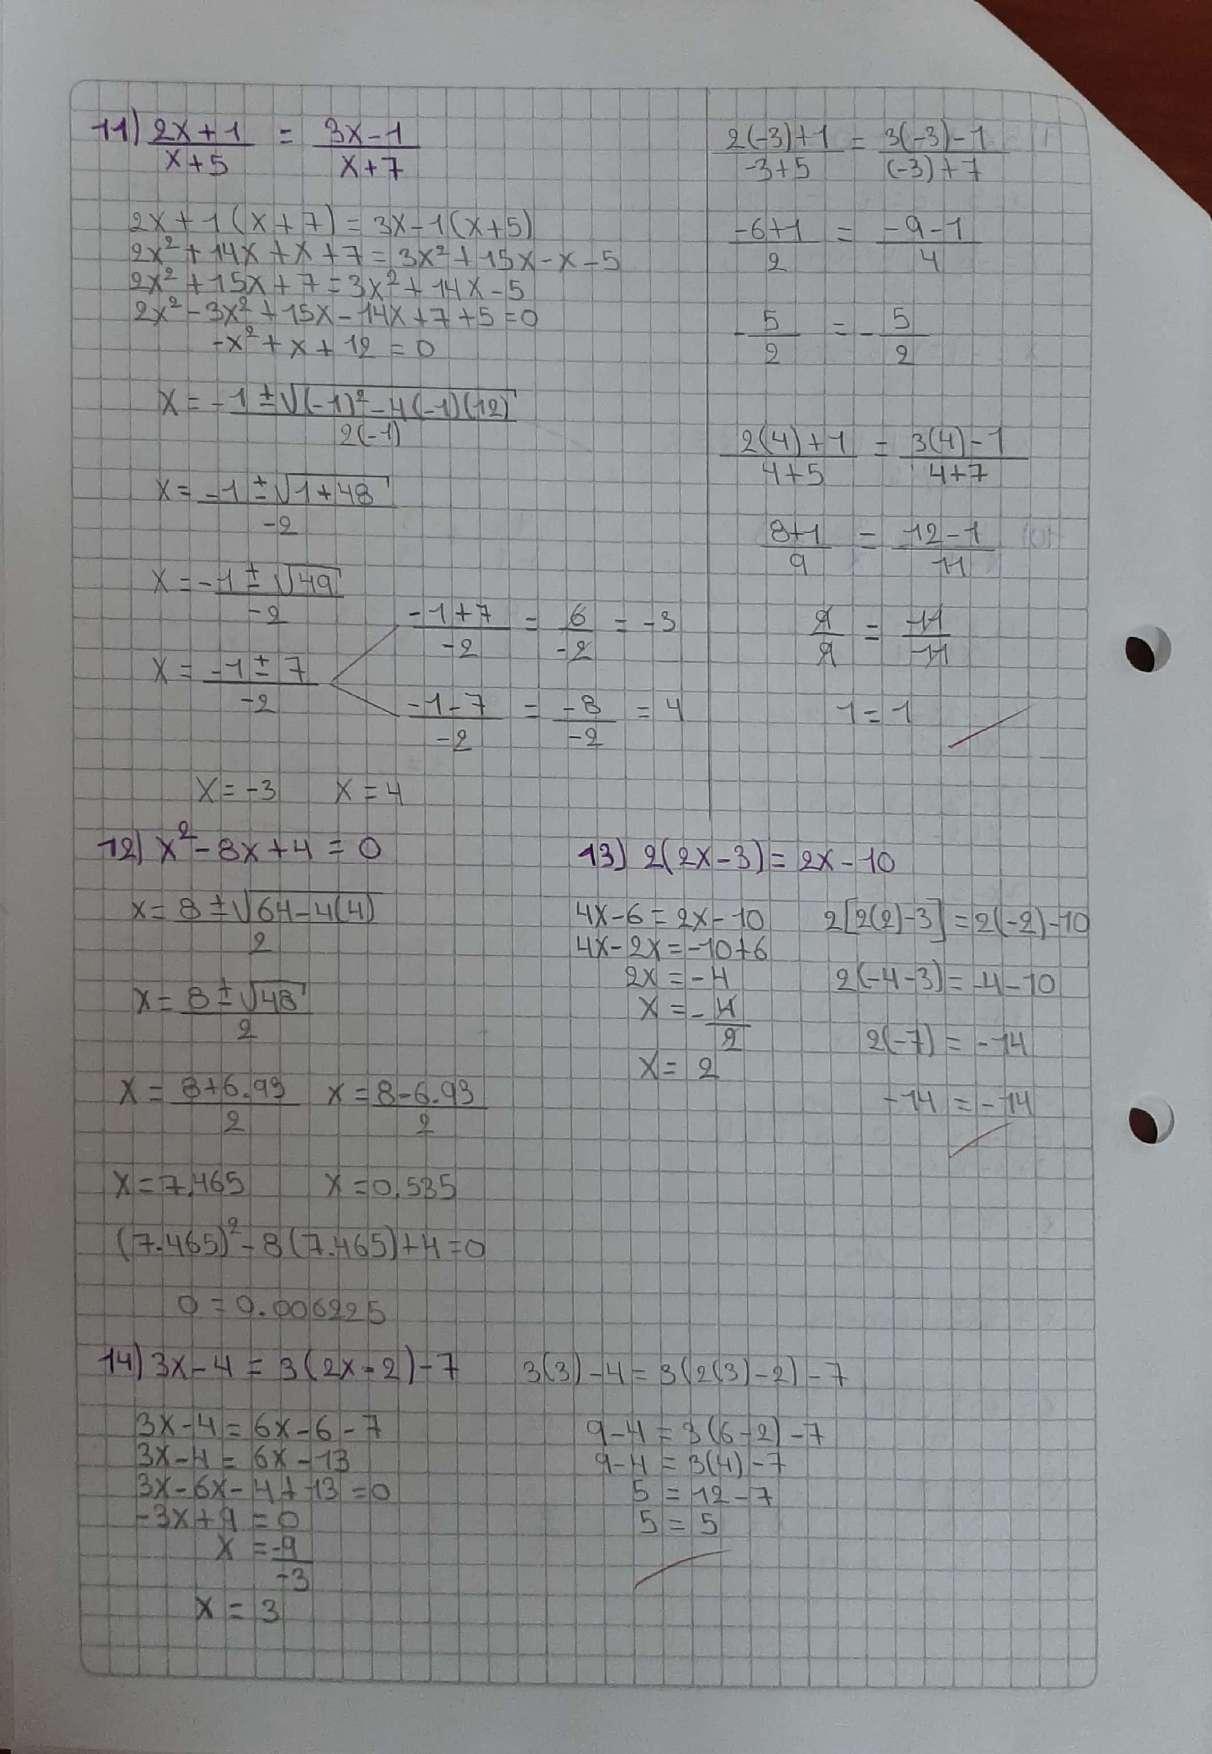 11) (2x+1)/(x+5) = (3x-1)/(x+7)
2x+1(x+7)=3x-1(x+5)
2x²+14x+x+7=3x²+15x-x-5
2x²+15x+7=3x²+14x-5
2x²-3x²+15x-14x+7+5=0
-x²+x+12=0
x=(-1±√((-1)²-4(-1)(12)))/(2(-1))
x=(-1±√(1+48))/(-2)
x=(-1±√49)/(-2)
x=(-1±7)/(-2)
(-1+7)/(-2) = 6/(-2) = -3
(-1-7)/(-2) = (-8)/(-2) = 4
x=-3 x=4
(2(-3)+1)/(-3+5) = (3(-3)-1)/((-3)+7)
(-6+1)/2 = (-9-1)/4
-5/2 = -5/2
(2(4)+1)/(4+5) = (3(4)-1)/(4+7)
(8+1)/9 = (12-1)/11
9/9 = 11/11
1=1
12) x²-8x+4=0
x=(8±√(64-4(4)))/2
x=(8±√48)/2
x=(8+6.93)/2 x=(8-6.93)/2
x=7,465 x=0,535
(7.465)²-8(7.465)+4=0
0=0.006225
13) 2(2x-3)=2x-10
4x-6=2x-10
4x-2x=-10+6
2x=-4
x=-4/2
x=2
2[2(2)-3]=2(-2)-10
2(-4-3)=-4-10
2(-7)=-14
-14=-14
14) 3x-4=3(2x-2)-7
3x-4=6x-6-7
3x-4=6x-13
3x-6x-4+13=0
-3x+9=0
x=-9/-3
x=3
3(3)-4=3(2(3)-2)-7
9-4=3(6-2)-7
9-4=3(4)-7
5=12-7
5=5